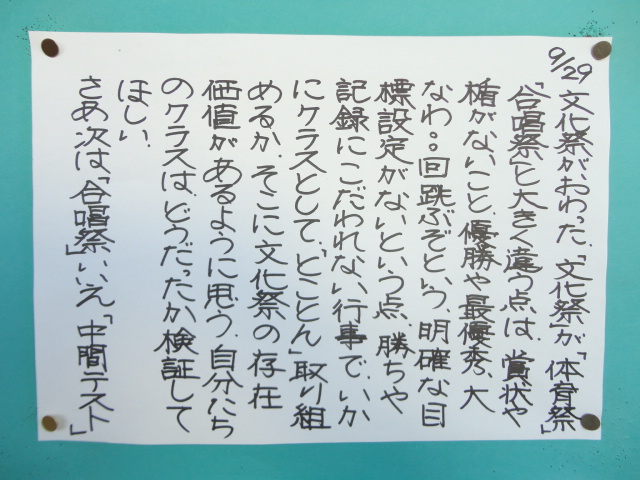 9/29 文化祭がおわった。「文化祭」が「体育祭」
「合唱祭」と大きく違う点は、賞状や
楯がないこと。優勝や最優秀、大
なわ○○回跳ぶぞという、明確な目
標設定がないという点。勝ちや
記録にこだわれない行事で、いか
にクラスとして、「とことん」取り組
めるか、そこに文化祭の存在
価値があるように思う。自分たち
のクラスは、どうだったか検証して
ほしい。
さあ次は「合唱祭」いいえ「中間テスト」